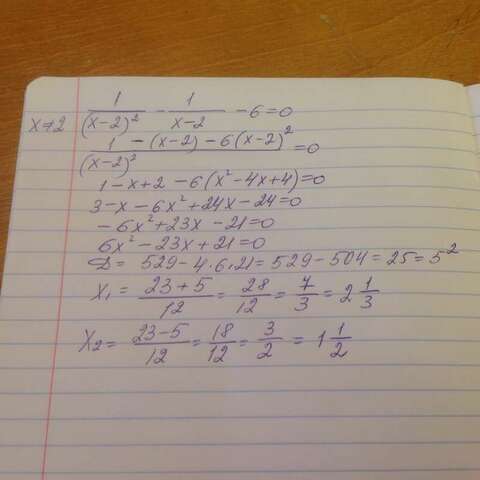 x≠2 1/(x-2)² - 1/(x-2) - 6 = 0
(1 - (x-2) - 6(x-2)²)/(x-2)² = 0
1 - x + 2 - 6(x² - 4x + 4) = 0
3 - x - 6x² + 24x - 24 = 0
- 6x² + 23x - 21 = 0
6x² - 23x + 21 = 0
D = 529 - 4·6·21 = 529 - 504 = 25 = 5²
x₁ = (23+5)/12 = 28/12 = 7/3 = 2 1/3
x₂ = (23-5)/12 = 18/12 = 3/2 = 1 1/2